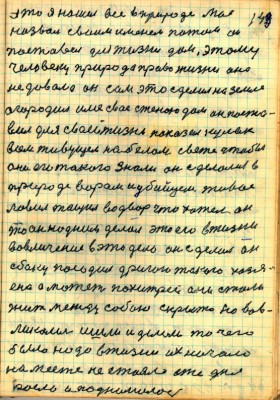 это я нашел все в природе мое
назвал своим именем потом он
поставил для жизни дом, этому
человеку природа право жизни она
не давала он сам это сделал на земле
огородил или свое стеною дом он поста-
вил для своей жизни показал
всем живущем на белом свете чтобы
они его такого знали он сделался в
природе вором и убийцем живое
ловил тащил во двор что хотел он
то он и одним делал это его в жизни
вовлечение в это дело он сделал он
собаку посадил другого такого хозя-
ена а может похитрей они стали
жить между собою скрытно но вов-
шли и делали то чего
было надо в жизни их начало
на месте не стояло оно дня
росло и поднималось